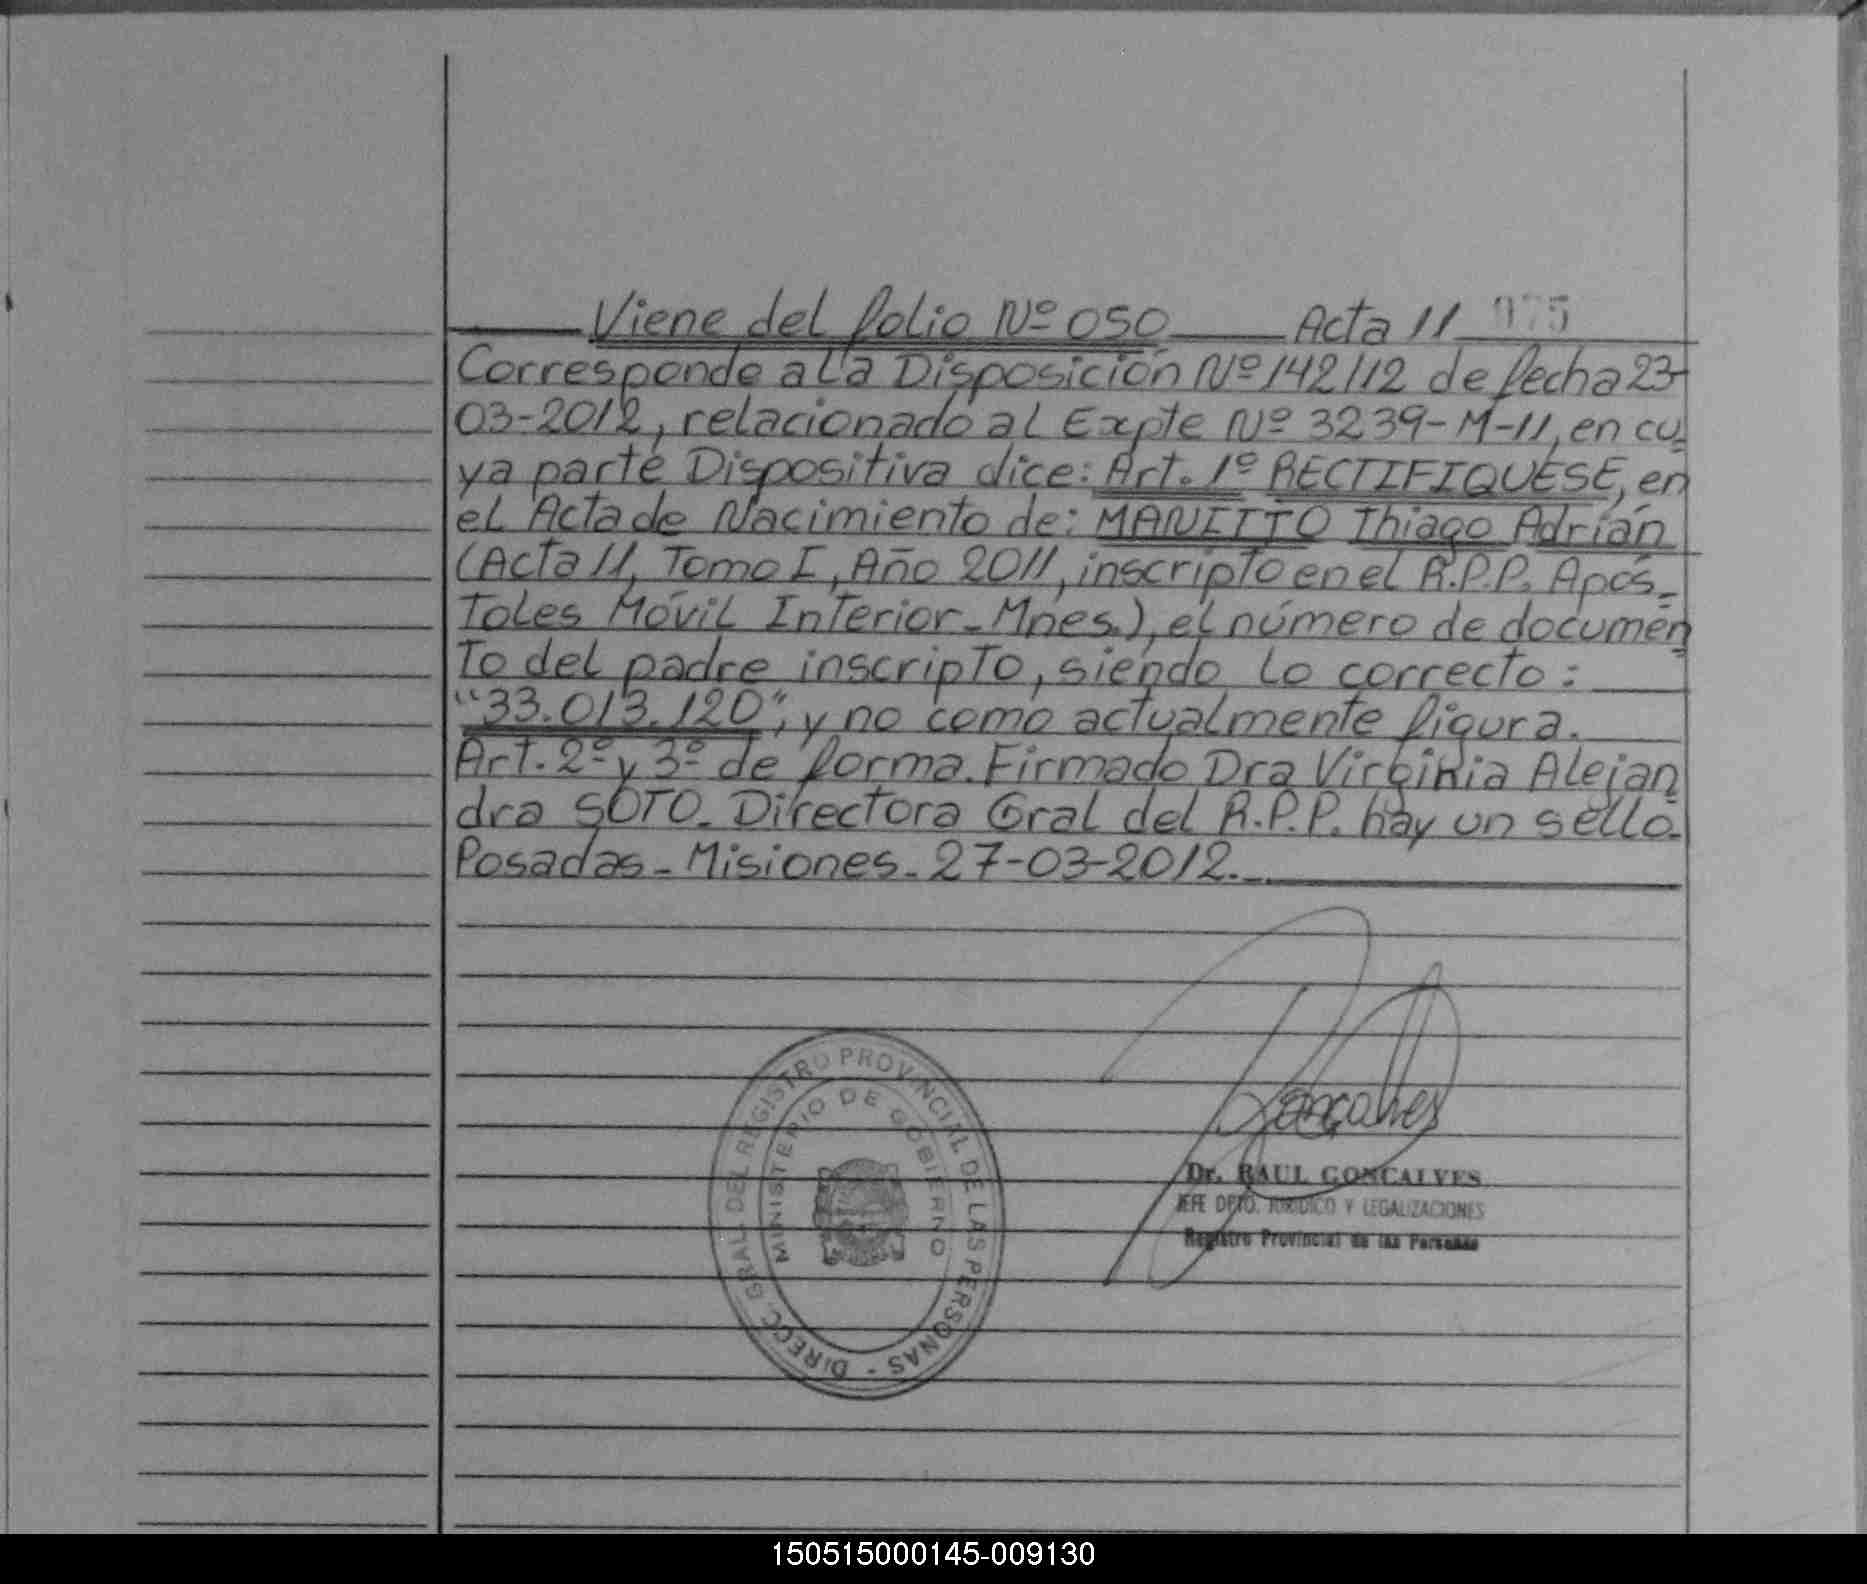 Viene del folio Nº 050 Acta 11 075
Corresponde a la Disposición Nº 142/12 de fecha 23-
03-2012, relacionado al Expte Nº 3239-M-11, en cu-
ya parte Dispositiva dice: Art. 1º RECTIFIQUESE, en
el Acta de Nacimiento de: MANITTO Thiago Adrián
(Acta 11, Tomo I, Año 2011, inscripto en el R.P.P. Após-
Toles Móvil Interior-Mnes.), el número de documen
To del padre inscripto, siendo lo correcto:
"33.013.120", y no como actualmente figura.
Art. 2º y 3º de forma. Firmado Dra Virginia Alejan
dra SOTO. Directora Gral del R.P.P. hay un sello.
Posadas-Misiones. 27-03-2012.
DIRECC. GRAL. DEL REGISTRO PROVINCIAL DE LAS PERSONAS -
MINISTERIO DE GOBIERNO
Goncalves
Dr. RAUL GONCALVES
JEFE DPTO. JURIDICO Y LEGALIZACIONES
Registro Provincial de las Personas
150515000145-009130